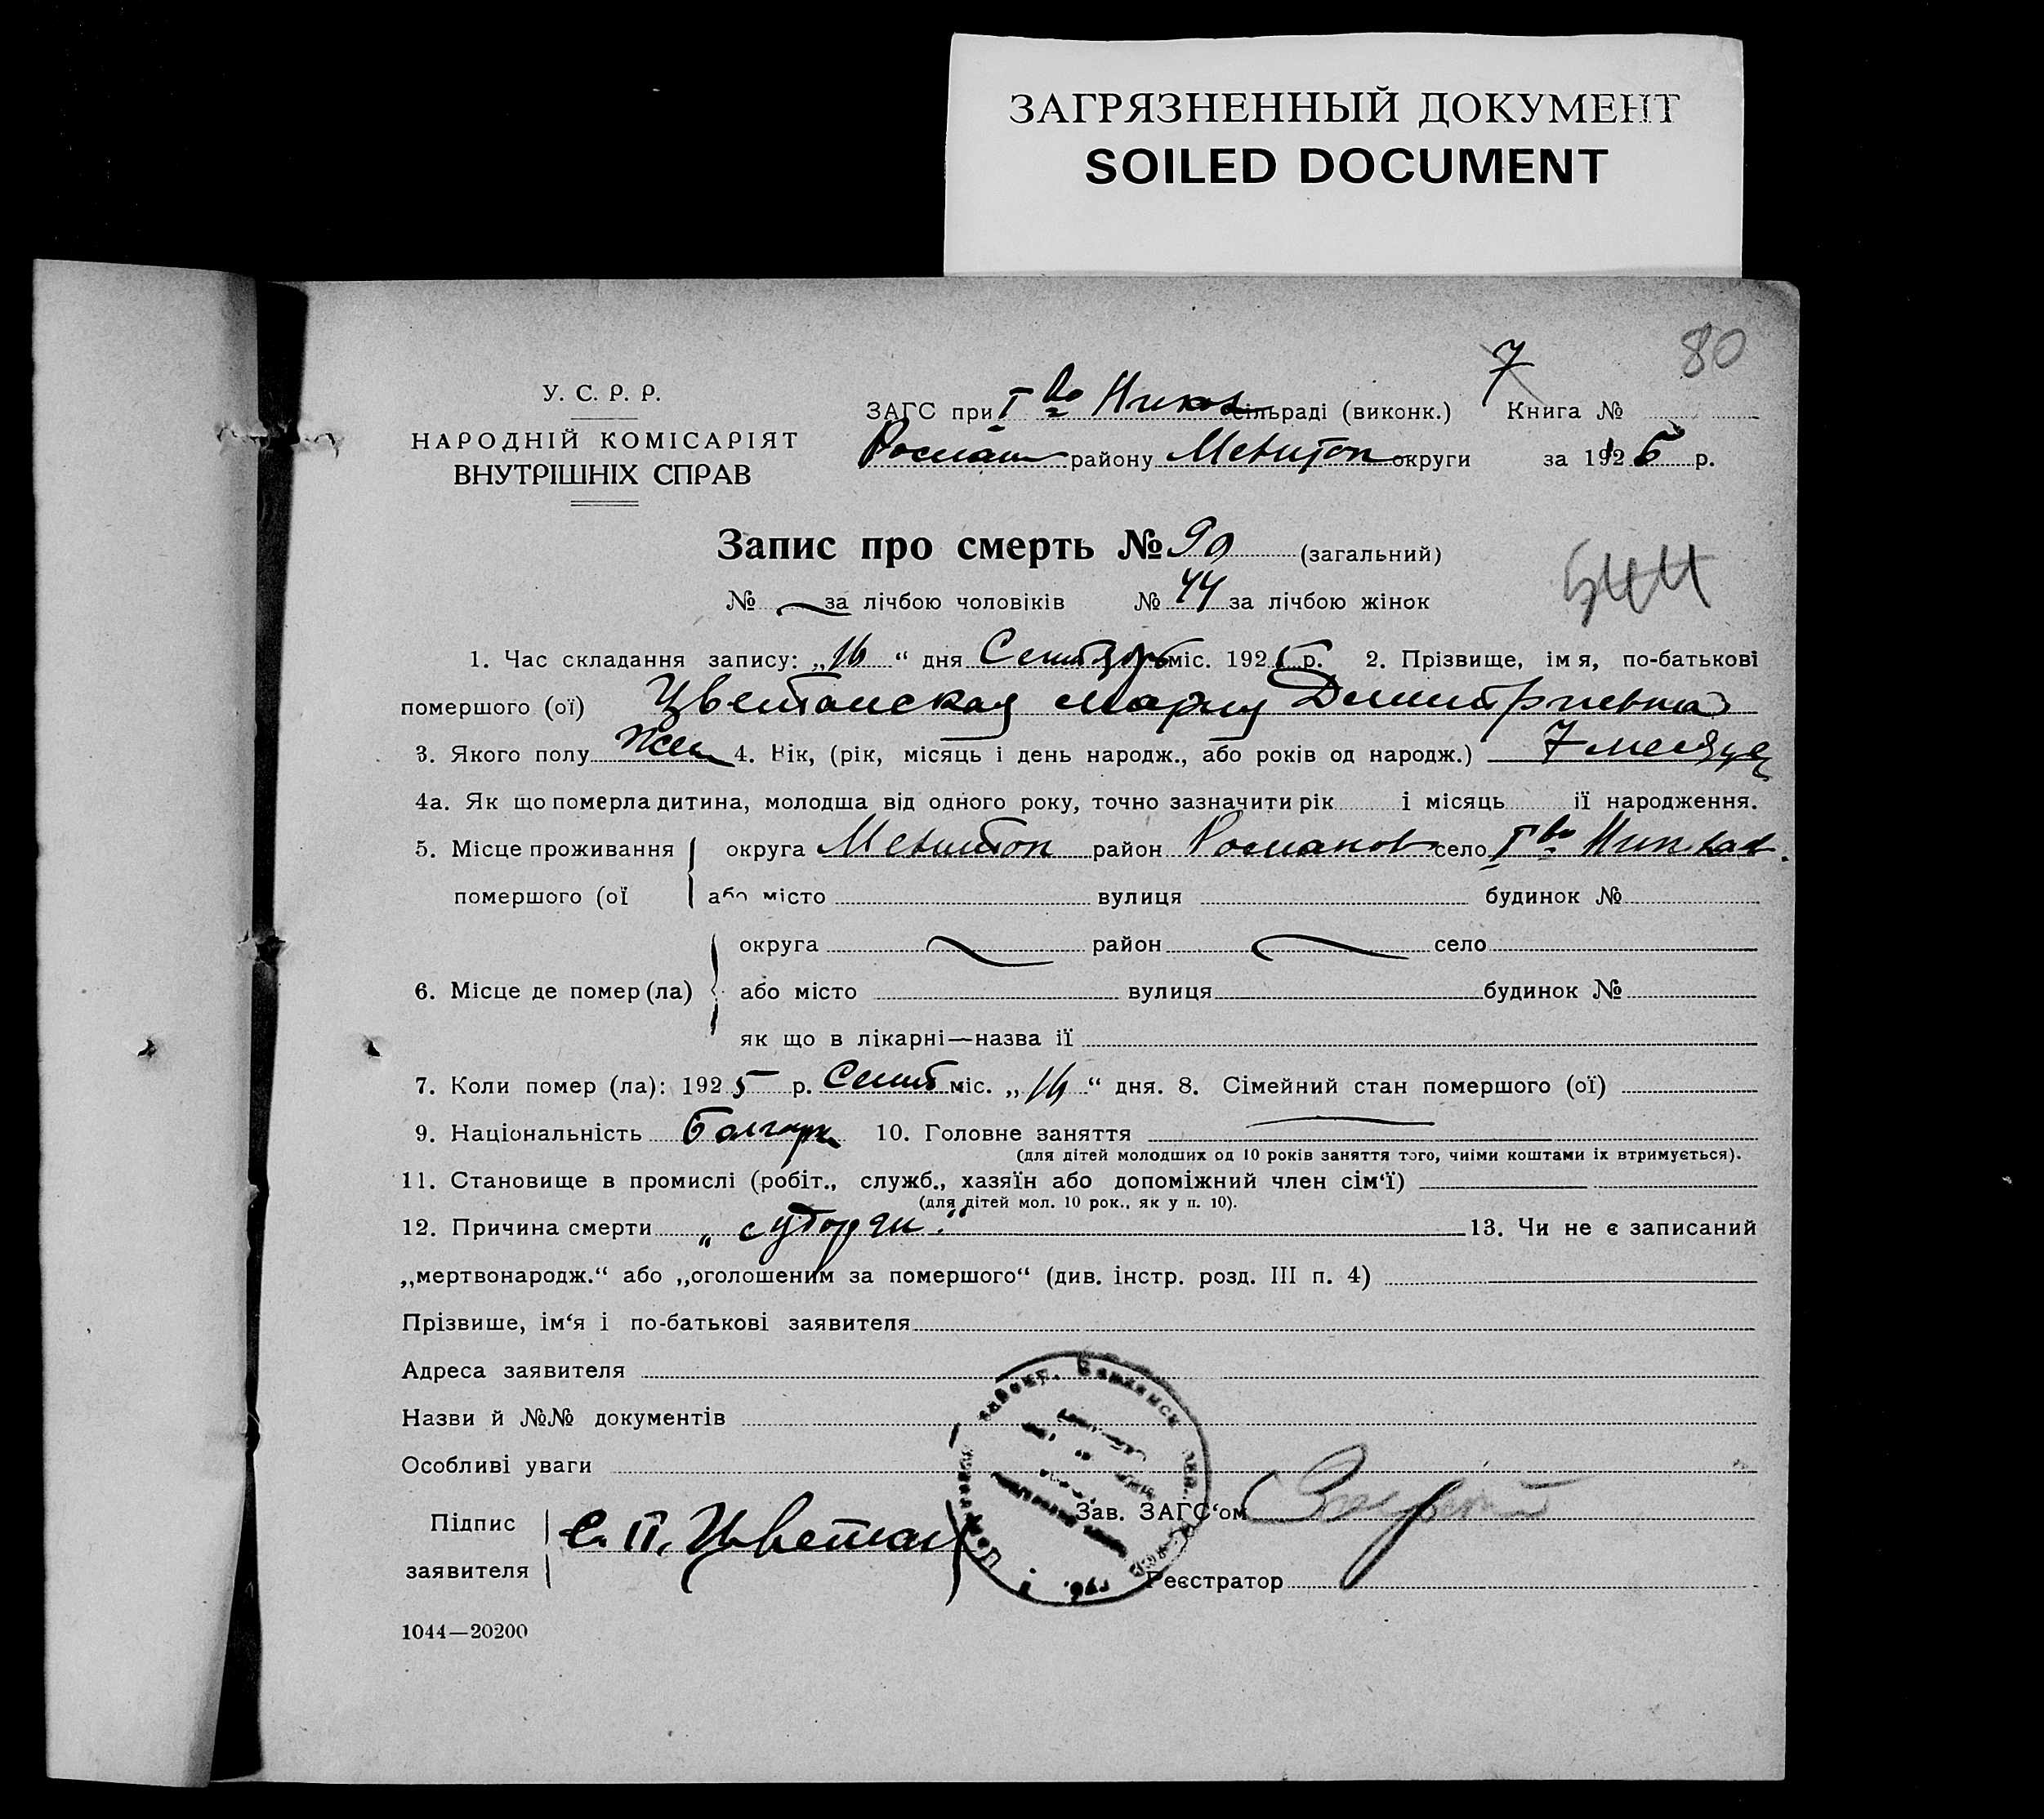 ЗАГРЯЗНЕННЫЙ ДОКУМЕНТ
SOILED DOCUMENT
80
7
У. С. Р. Р.
НАРОДНІЙ КОМІСАРІЯТ
ВНУТРІШНІХ СПРАВ
ЗАГС при І во Никол сільраді (виконк.) Книга №
Роман району Мелитоп округи за 1925 р.
Запис про смерть № 90 (загальний)
544
№ за лічбою чоловіків № 44 за лічбою жінок
1. Час складання запису: „16“ дня Сентябрь міс. 1925 р. 2. Прізвище, імя, по-батькові
помершого (ої) Цветанская Мария Димитриевна
3. Якого полу Жен 4. Вік, (рік, місяць і день народж., або років од народж.) 7 месяце
4а. Як що померла дитина, молодша від одного року, точно зазначити рік і місяць її народження.
5. Місце проживання округа Мелитоп район Романов село І во Никол
помершого (ої або місто вулиця будинок №
округа район село
6. Місце де помер (ла) або місто вулиця будинок №
як що в лікарні—назва її
7. Коли помер (ла): 1925 р. Сент міс. „16“ дня. 8. Сімейний стан помершого (ої)
9. Національність Болгарк 10. Головне заняття
(для дітей молодших од 10 років заняття того, чиїми коштами їх втримується).
11. Становище в промислі (робіт., служб., хазяїн або допоміжний член сім‘ї)
(для дітей мол. 10 рок., як у п. 10).
12. Причина смерти 13. Чи не є записаний
„мертвонародж.“ або „оголошеним за помершого“ (див. інстр. розд. III п. 4)
Прізвише, ім‘я і по-батькові заявителя
Адреса заявителя
Назви й №№ документів
Особливі уваги
Підпис
заявителя
С. П. Цветан
Зав. ЗАГС‘ом
Реєстратор
1044—20200